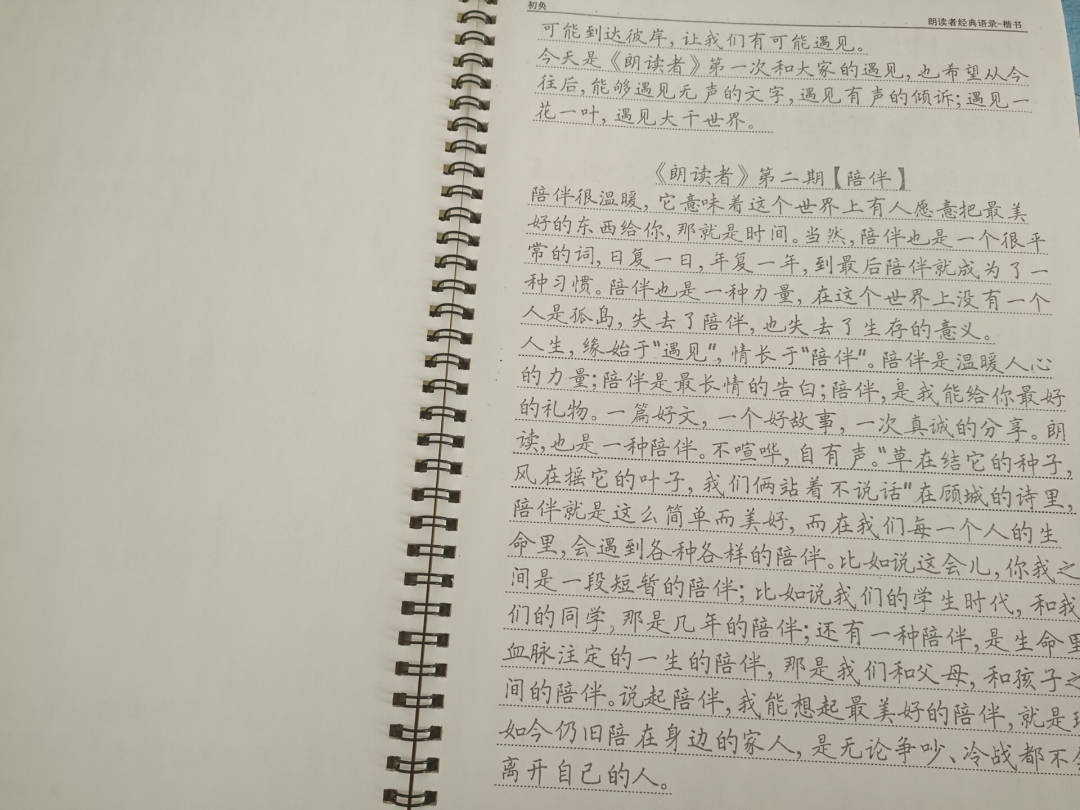 初奂
朗读者经典语录-楷书
可能到达彼岸，让我们有可能遇见。
今天是《朗读者》第一次和大家的遇见，也希望从今
往后，能够遇见无声的文字，遇见有声的倾诉；遇见一
花一叶，遇见大千世界。
《朗读者》第二期【陪伴】
陪伴很温暖，它意味着这个世界上有人愿意把最美
好的东西给你，那就是时间。当然，陪伴也是一个很平
常的词，日复一日，年复一年，到最后陪伴就成为了一
种习惯。陪伴也是一种力量，在这个世界上没有一个
人是孤岛，失去了陪伴，也失去了生存的意义。
人生，缘始于"遇见"，情长于"陪伴"。陪伴是温暖人心
的力量；陪伴是最长情的告白；陪伴，是我能给你最好
的礼物。一篇好文，一个好故事，一次真诚的分享。朗
读，也是一种陪伴。不喧哗，自有声。"草在结它的种子，
风在摇它的叶子，我们俩站着不说话"在顾城的诗里，
陪伴就是这么简单而美好，而在我们每一个人的生
命里，会遇到各种各样的陪伴。比如说这会儿，你我之
间是一段短暂的陪伴；比如说我们的学生时代，和我
们的同学，那是几年的陪伴；还有一种陪伴，是生命里
血脉注定的一生的陪伴，那是我们和父母，和孩子之
间的陪伴。说起陪伴，我能想起最美好的陪伴，就是
如今仍旧陪在身边的家人，是无论争吵、冷战都不会
离开自己的人。